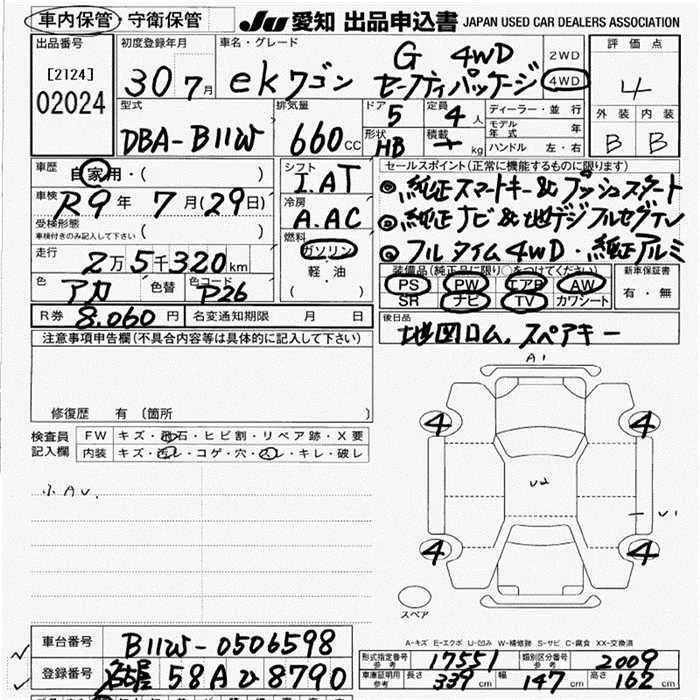 車内保管・守衛保管
JU 愛知 出品申込書 JAPAN USED CAR DEALERS ASSOCIATION
出品番号
[2124]
02024
初度登録年月
30 7月
車名・グレード
ekワゴン G 4WD
セーフティパッケージ
2WD
4WD
評価点
4
外装 内装
B B
型式
DBA-B11W
排気量
660 CC
ドア 5
形状 HB
定員 4 人
積載 kg
ディーラー・並行
モデル年式 年
ハンドル 左・右
車歴 自家用・( )
車検 R9年 7月(29日)
受検形態
車検付きのみ記入して下さい ( )
走行
2万5千320km
色 アカ 色替 色コード P26
シフト
I.AT
冷房
A.AC
燃料
ガソリン
軽・油
( )
セールスポイント(正常に機能するものに限ります)
◎純正スマートキー&プッシュスタート
◎純正ナビ&地デジフルセグTV
◎フルタイム4WD・純正アルミ
装備品(純正品に限り○をつけてください)
PS PW エアB AW
SR ナビ TV カワシート
新車保証書
有・無
R券 8.060円 名変通知期限 月 日
後日品
地図ロム.スペアキー
注意事項申告欄(不具合内容等は具体的に記入して下さい)
修復歴 有〔箇所 〕
検査員記入欄
FW キズ・飛石・ヒビ割・リペア跡・X要
内装 キズ・西レ・コゲ・穴・スレ・キレ・破レ
小AU.
A1
4 4
U2
U1
4 4
スペア
A-キズ E-エクボ U-凹み W-補修跡 S-サビ C-腐食 XX-交換済
車台番号 B11W-0506598
登録番号 名古屋 58A ひ 8790
形式指定番号 参考 17551 類別区分番号 参考 2009
車庫証明用 参考 長さ 339cm 幅 147cm 高さ 162cm